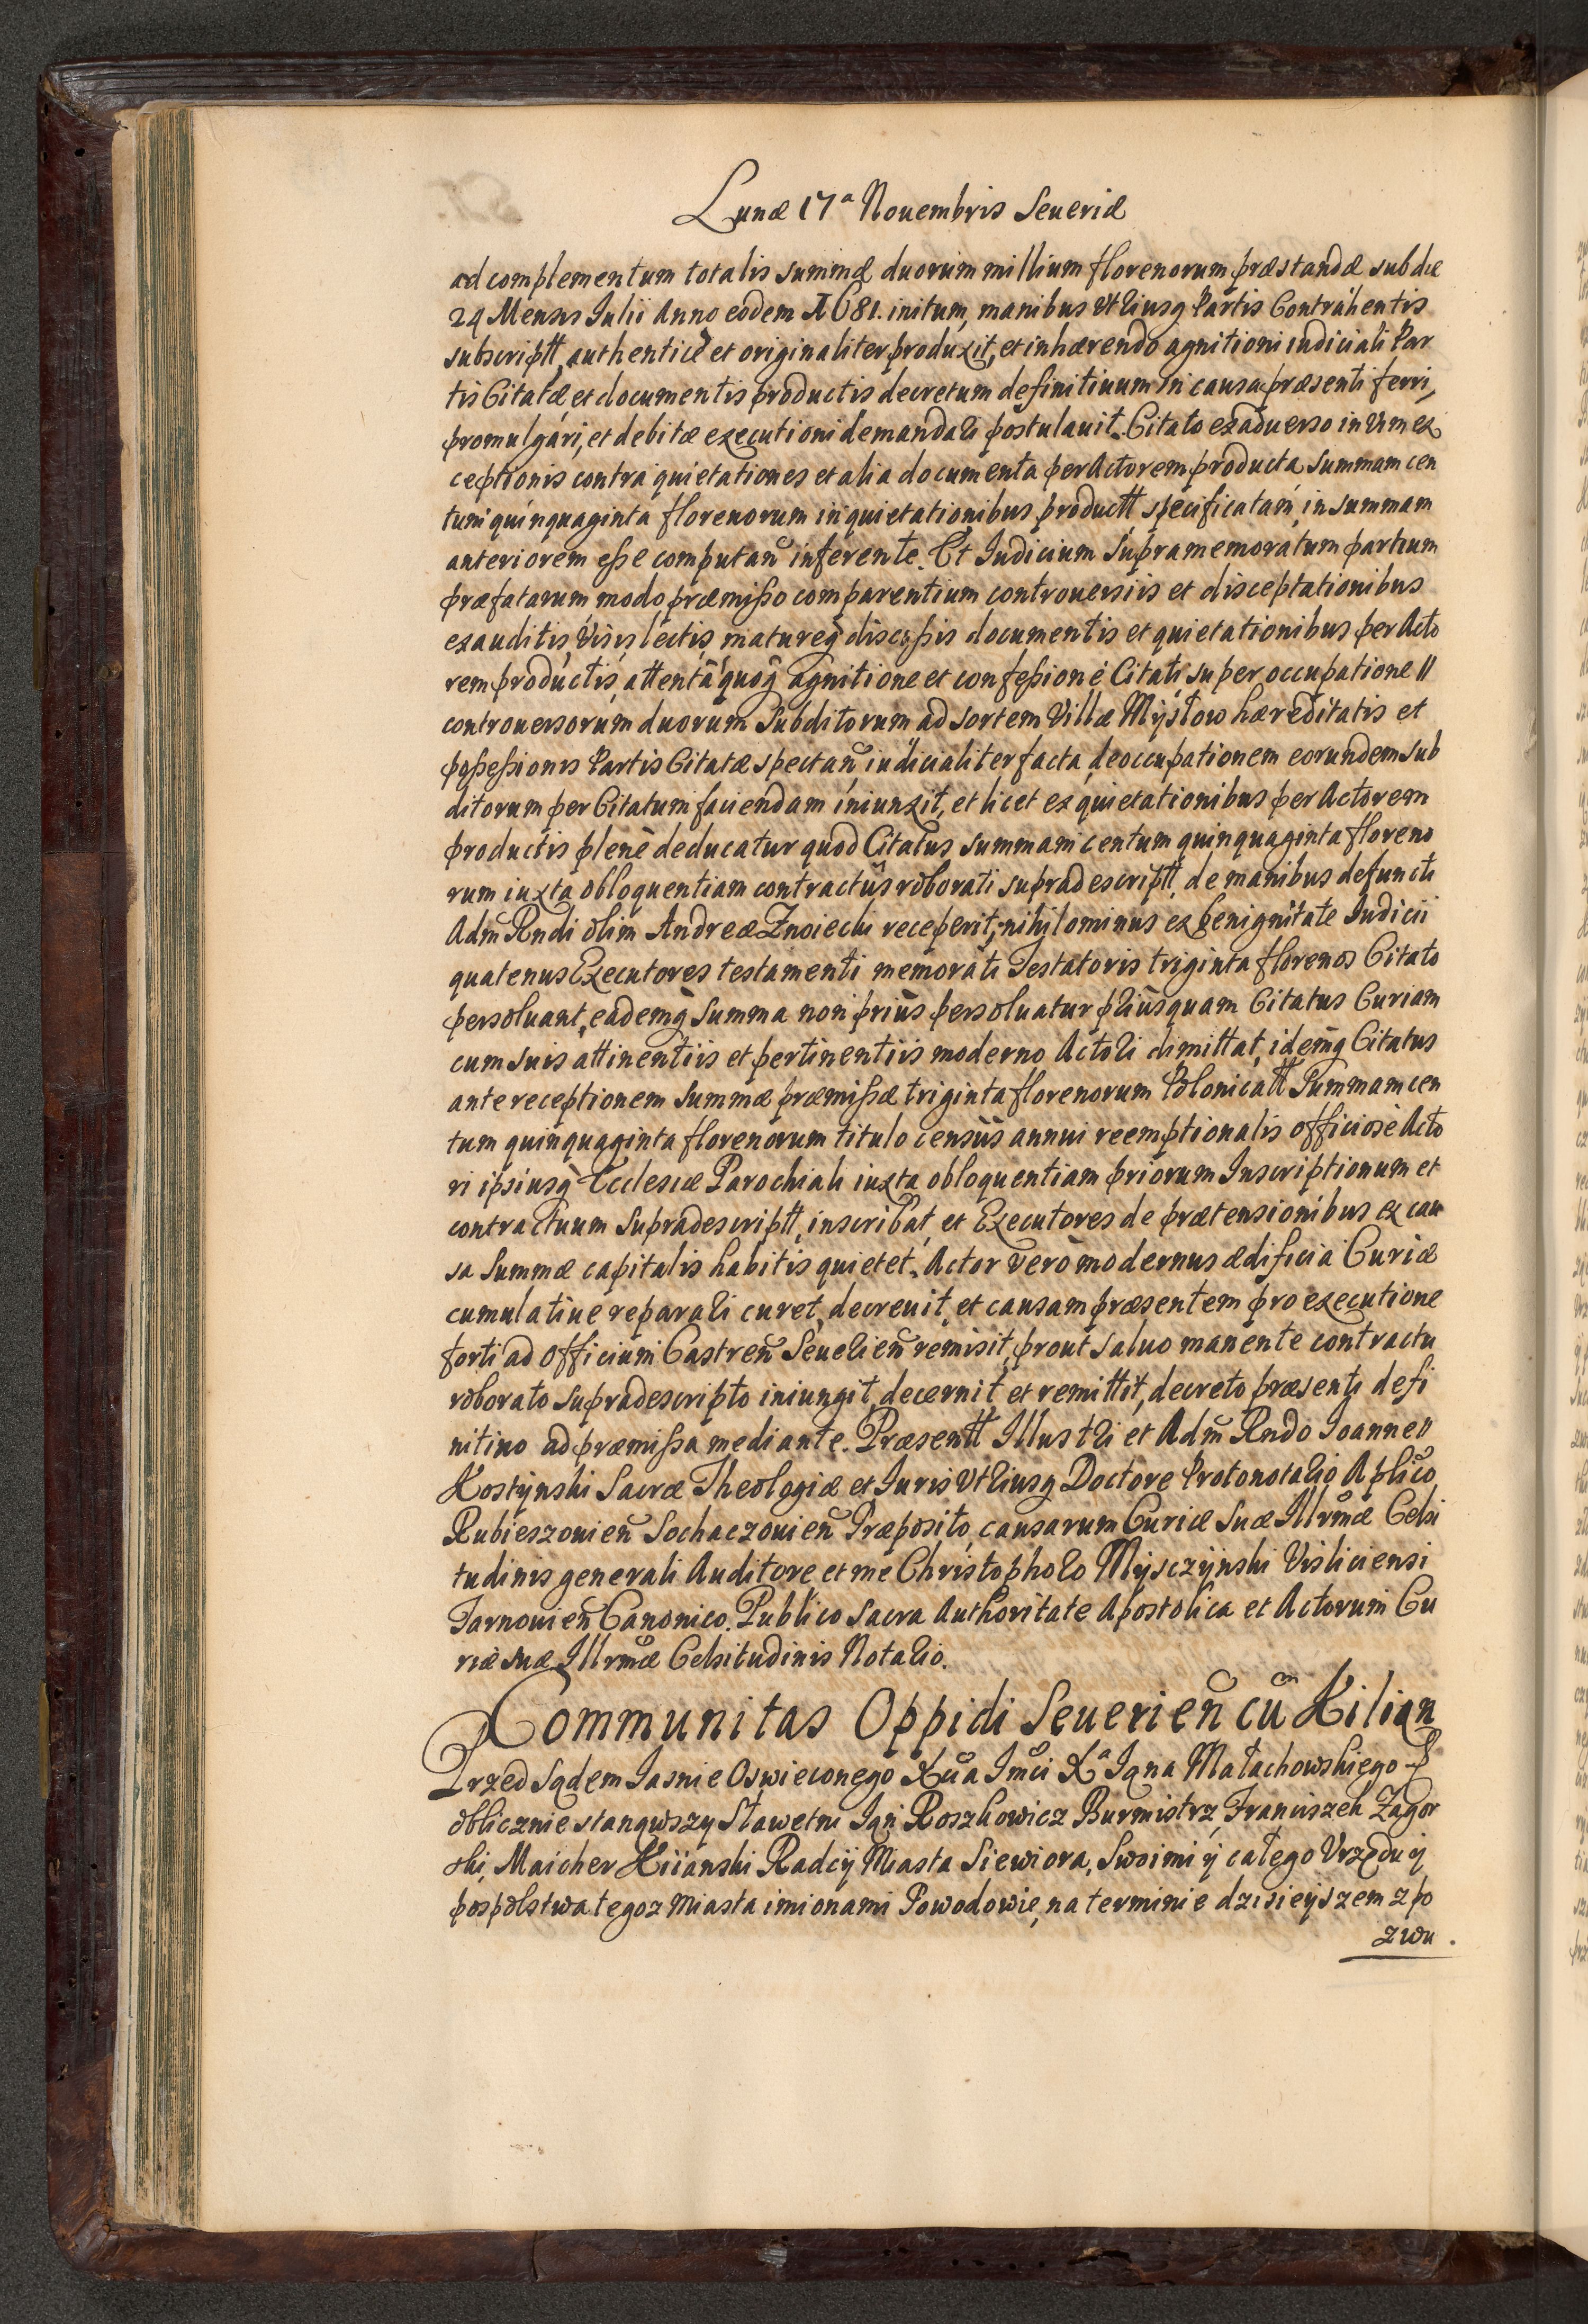 Lunæ 17ª Nouembris Seueriæ
ad complementum totalis summæ duorum millium florenorum præstandæ sub die
24 Mensis Iulii Anno eodem 1681. initum, manibus Vtriusq Partis Contrahentis
subscriptt, authenticè et originaliter produxit, et inhærendo agnitioni iudiciali Par
tis Citatæ et documentis productis decretum definitiuum in causa præsenti ferri,
promulgari, et debitæ executioni demandari postulauit. Citato ex aduerso in Vim ex
ceptionis contra quietationes et alia documenta per Actorem producta, Summam cen
tum quinquaginta florenorum in quietationibus productt specificatam, in summam
anteriorem eße computan̄ inferente. Et Iudicium Supramemoratum partium
præfatarum modo præmißo comparentium controuersiis et disceptationibus
exauditis, Visis, lectis, matureq discußis documentis et quietationibus per Acto
rem productis, attentâ quoq agnitione et confeßione Citati super occupatione //
controuersorum duorum Subditorum ad sortem Villæ Mysłow hæreditatis et
poßeßionis Partis Citatæ spectan̄ iudicialiter facta, deoccupationem eorundem sub
ditorum per Citatum faciendam iniunxit, et licet ex quietationibus per Actorem
productis plenè deducatur quod Citatus summam centum quinquaginta floreno
rum iuxta obloquentiam contractûs roborati supradescriptt, de manibus defuncti
Adm̄ Rndi olim Andreæ Znoiecki receperit, nihilominus ex benignitate Iudicii
quatenus Executores testamenti memorati Testatoris triginta florenos Citato
persoluant, eademq̄ Summa non priùs persoluatur priùsquam Citatus Curiam
cum suis attinentiis et pertinentiis moderno Actori dimittat, idemq̄ Citatus
ante receptionem Summæ præmißæ triginta florenorum Polonicatt Summam cen
tum quinquaginta florenorum titulo censûs annui reemptionalis officiosè Acto
ri ipsiusq̄ Ecclesiæ Parochiali iuxta obloquentiam priorum Inscriptionum et
contractuum Supradescriptt, inscribat, et Executores de prætensionibus ex cau
sa Summæ capitalis habitis quietet. Actor verò modernus ædificia Curiæ
cumulatiue reparari curet, decreuit, et causam præsentem pro executione
forti ad Officium Castren̄ Seuerien̄ remisit, prout saluo manente contractu
roborato supradescripto iniungit, decernit, et remittit, decreto præsenti defi
nitiuo ad præmißa mediante. Præsentt Illustri et Adm̄ Rndo Ioanne //
Kostynski Sacræ Theologiæ et Iuris Vtriusq Doctore Protonotario Aplico
Rubieszouien̄ Sochaczouien̄ Præposito, causarum Curiæ Suæ Illrmæ Celsi
tudinis generali Auditore et me Christophoro Mysczynski Visliciensi
Tarnouien̄ Canonico. Publico Sacra Authoritate Apostolica et Actorum Cu
riæ suæ Illrmæ Celsitudinis Notario.
Communitas Oppidi Seuerien̄ cū Kilian
Przed Sądem Iasnie Oswieconego Xcia Imci Xª Iana Małachowskiego
oblicznie stanąwszy Sławetni Ian Roszkowicz Burmistrz, Franiszek Zagor
ski, Maicher Kiianski Radcy Miasta Siewiora, Swoimi y całego Vrzędu y
pospolstwa tegoz Miasta imionami Powodowie, na terminie dzisieyszem z po
zwu.